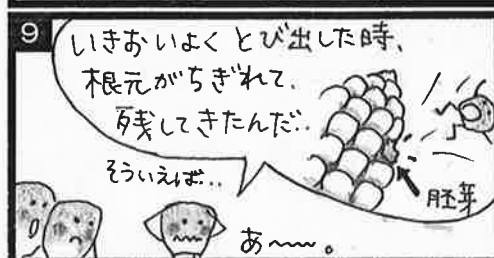 9
いきおいよく とび出した時、
根元がちぎれて、
残してきたんだ‥
そういえば‥
胚芽
あ〜〜。